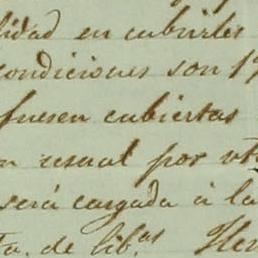 lidad en cubrirles
condiciones son 1ª
fuesen cubiertas
n usual por
será cargada à la
ta. de lib.as Her